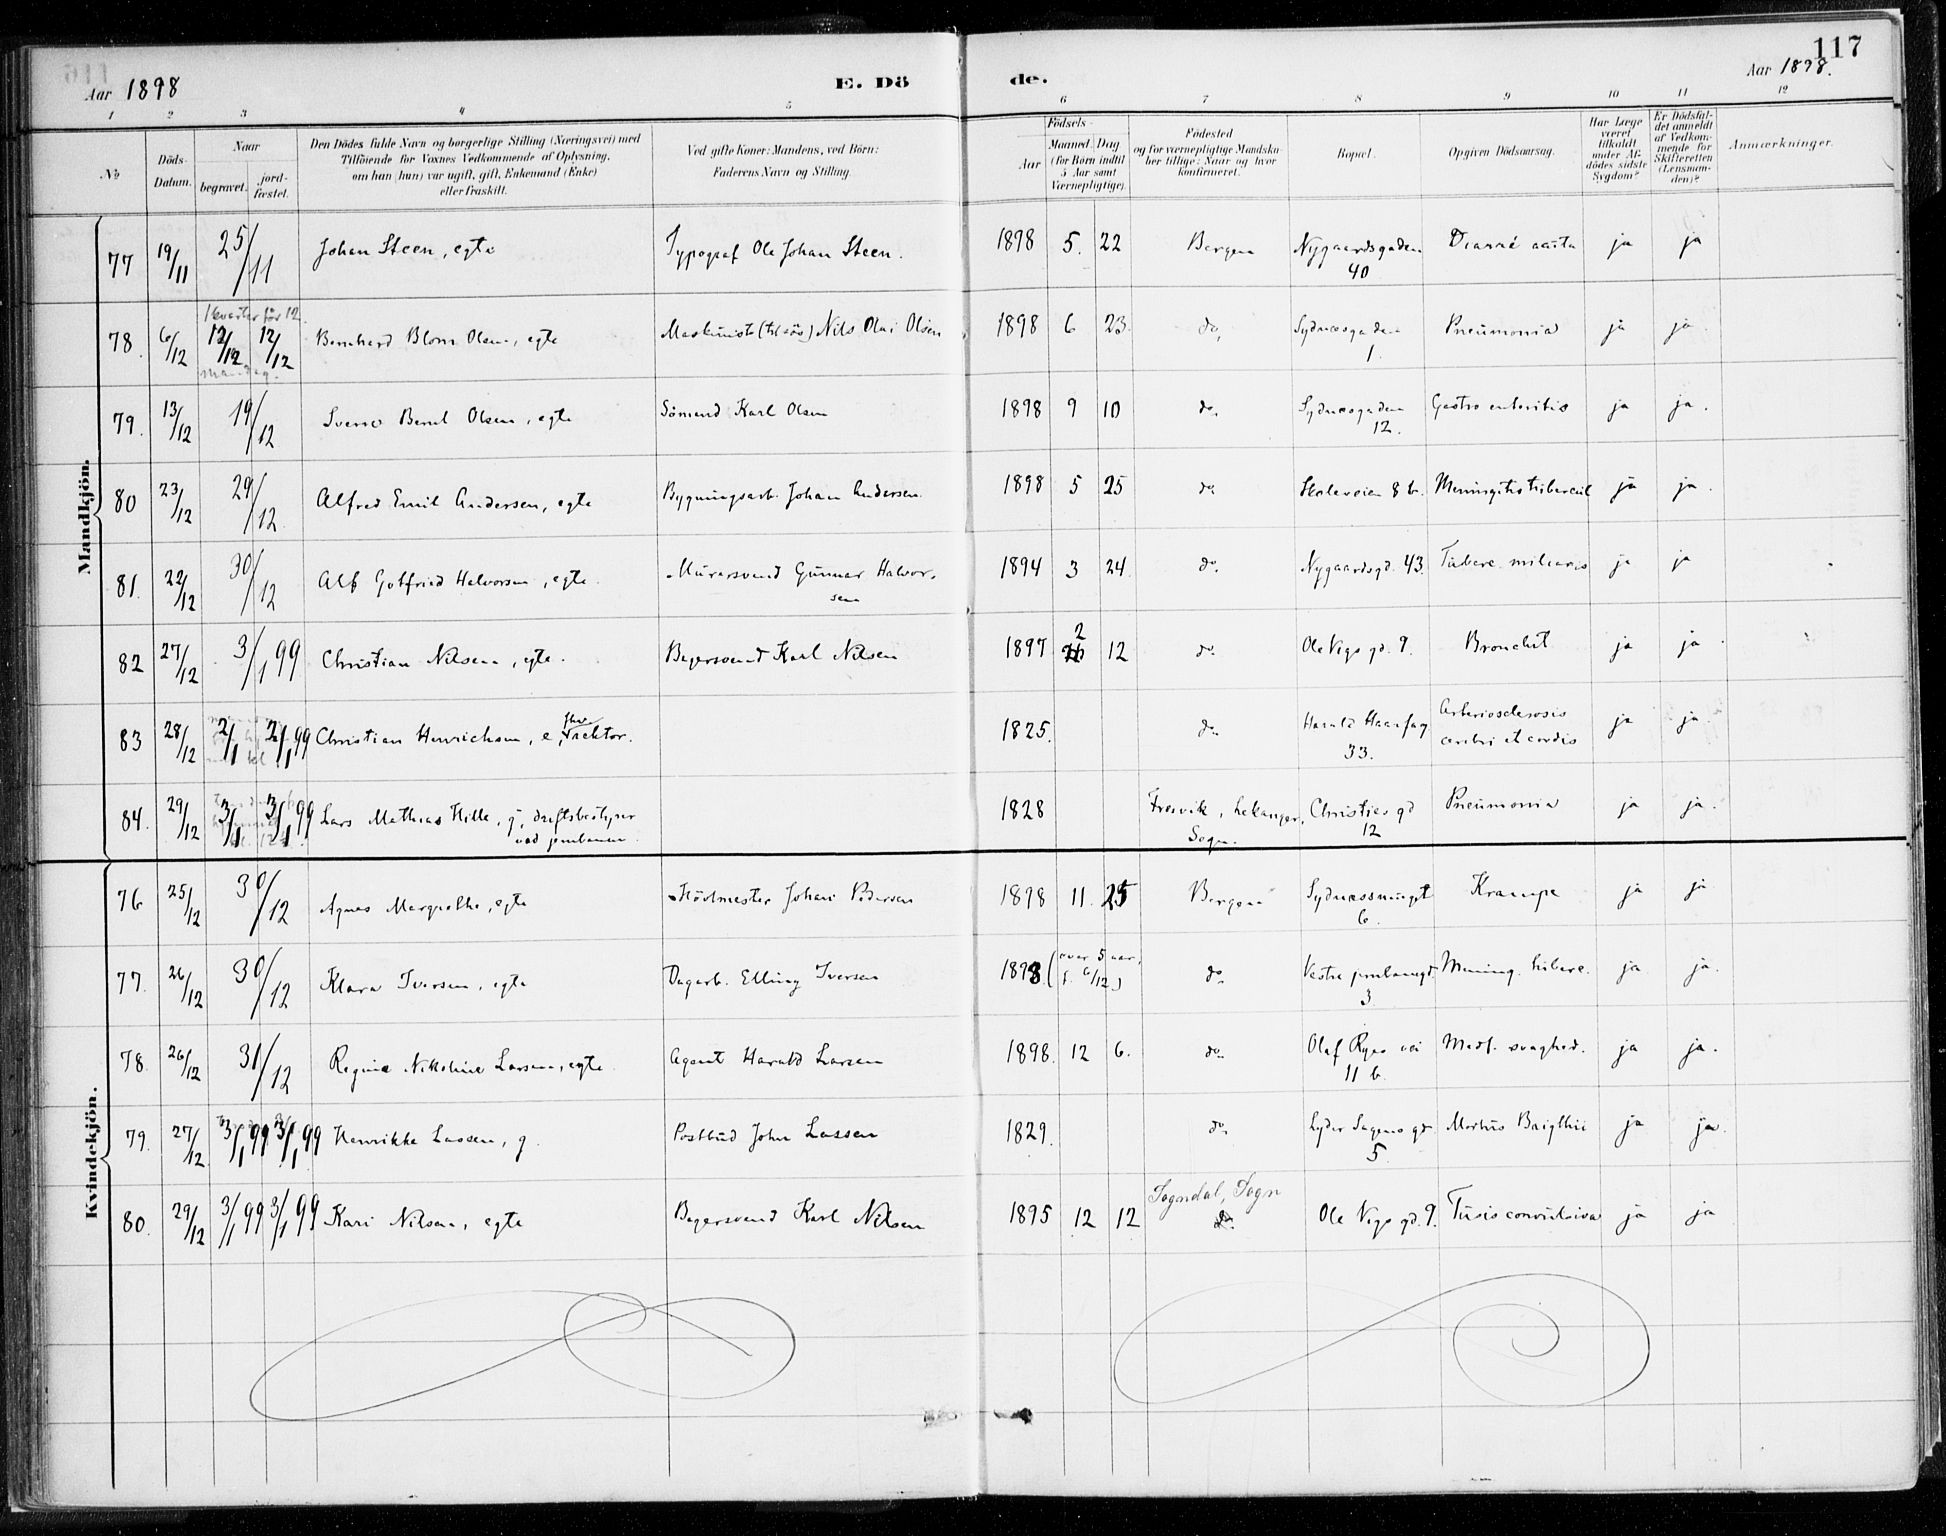 117
Aar 1898
E. Dö
de.
Aar 1898.
1 2 3 4 5 6 7 8 9 10 11 12
No
Döds-Datum.
Naar
begravet.
jord-fæstet.
Den Dödes fulde Navn og borgerlige Stilling (Næringsvei) med
Tilföiende for Voxnes Vedkommende af Oplysning,
om han (hun) var ugift, gift, Enkemand (Enke)
eller fraskilt.
Ved gifte Koner: Mandens, ved Börn:
Faderens Navn og Stilling.
Födsels-
Aar
Maaned. Dag
(for Börn indtil
5 Aar samt
Værnepligtige)
Födested
og for værnepligtige Mandska-
ber tillige: Naar og hvor
konfirmeret.
Bopæl.
Opgiven Dödsaarsag.
Har Læge
været
tilkaldt
under Af-
dödes sidste
Sygdom?
Er Dödsfal-
det anmeldt
af Vedkom-
mende for
Skifteretten
(Lensman-
den)?
Anmærkninger.
Mandkjön.
77 19/11 25/11 Johan Steen, egte Typograf Ole Johan Steen. 1898 5. 22 Bergen Nygaardsgaden 40 Diarré ja ja
1 kvarter før 12
78. 6/12 12/12 12/12 Bernhard Blom Olsen, egte Maskinist (tilsøs) Nils Olai Olsen 1898 6 23 do. Sydnæsgaden 1. Pneumonia ja ja.
mandag.
79. 13/12 19/12 Sverre Bernt Olsen, egte Sömand Karl Olsen 1898 9 10 do. Sydnæsgaden 12. Gastro enteritis ja ja.
80 23/12 29/12 Alfred Emil Andersen, egte Bygningsarb. Johan Andersen. 1898 5 25 do Skoleveien 8 b. Meningitis tubercul ja ja.
81. 22/12 30/12 Alf Gotfried Halvorsen, egte. Murersvend Gunnar Halvor-
sen 1894 3 24. do. Nygaardsgd. 43. Tuberc. miliaris ja ja
82 27/12 3/1 99 Christian Nilsen, egte. Bagersvend Karl Nilsen 1897 2 12 do. Ole Vigs gd. 9. Bronchit ja ja.
83 28/12 2/1 2/1 99 Christian Henrichsen, e, faktor. 1825. do. Harald Haarfag 33. Arteriosclerosis
cerebri et cordis ja ja.
84. 29/12 3/1 3/1 99 Lars Mathias Hille, g, driftsbestyrer
ved jernbanen. 1828 Fresvik, Lekanger,
Sogn. Christies gd 12 Pneumonia ja ja.
Kvindekjön.
76 25/12 30/12 Agnes Margrethe, egte Johan Pedersen 1898 11. 25 Bergen Sydnæssmuget 6. Krampe ja ja
77. 26/12 30/12 Klara Iversen, egte Dagarb. Elling Iversen 1893. (over 5 aar,
f. 6/12) do. Vestre jernbanegd. 3. Mening. tuberc. ja ja.
78. 26/12 31/12 Regine Nikoline Larsen, egte. Agent Harald Larsen 1898. 12 6. do. Olaf Ryes vei 11 b. Medf. svaghed. ja ja.
79. 27/12 3/1 99 3/1 99 Henrikke Lassen, g. Postbud John Lassen 1829. do. Lyder Sagens gd. 5. Morbus Brigthii ja ja.
80. 29/12 3/1 99 3/1 99 Kari Nilsen, egte Bagersvend Karl Nilsen 1895 12 12 Sogndal, Sogn
do. Ole Vigs gd. 9. Tusis convulsiva ja ja